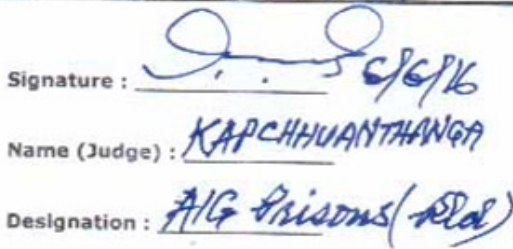 Signature : 6/6/16
Name (Judge) : KAPCHHUANTHANGA
Designation : AIG Prisons (Rtd)